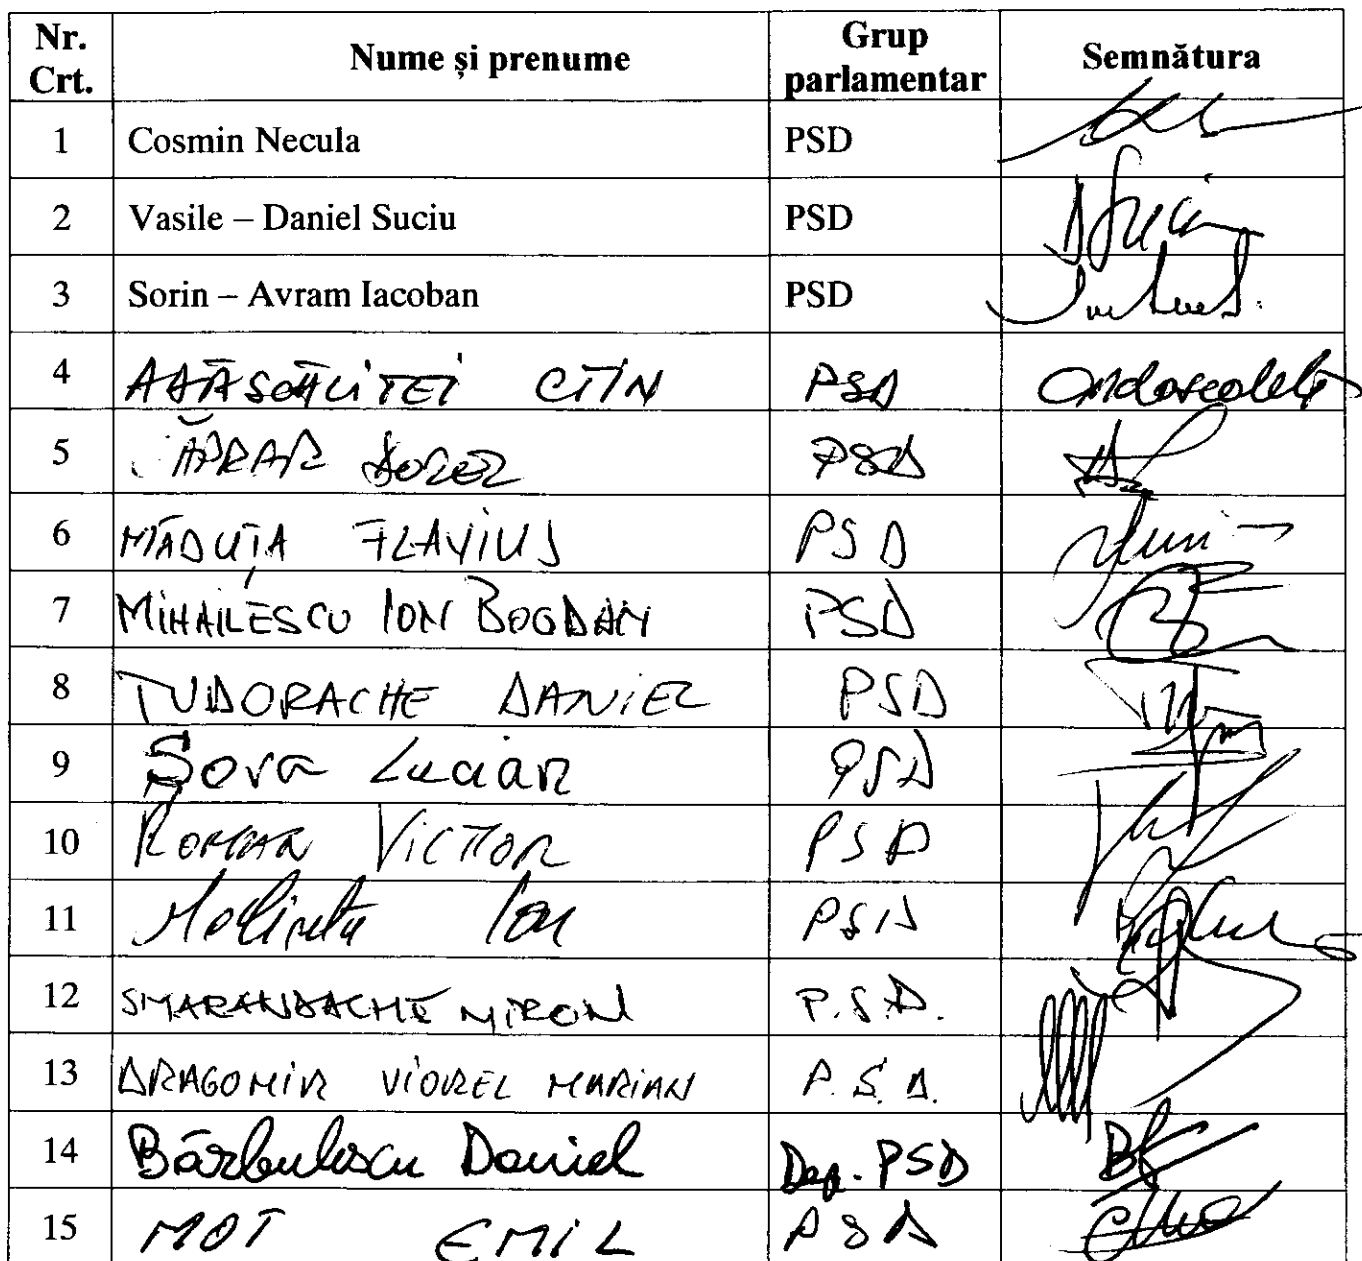 Nr. Crt. Nume și prenume Grup parlamentar Semnătura
1 Cosmin Necula PSD
2 Vasile – Daniel Suciu PSD
3 Sorin – Avram Iacoban PSD
4 PSD
5 PSD
6 MĂDUȚA FLAVIUS PSD
7 MIHAILESCU ION BOGDAN PSD
8 TUDORACHE DANIEL PSD
9 Șova Lucian PSD
10 ROMAN VICTOR PSD
11 Ion PSD
12 SMARANDACHE MIRON P.S.D.
13 DRAGOMIR VIOREL MARIAN P.S.D.
14 Bărbulescu Daniel Dep. PSD
15 MOT EMIL PSD